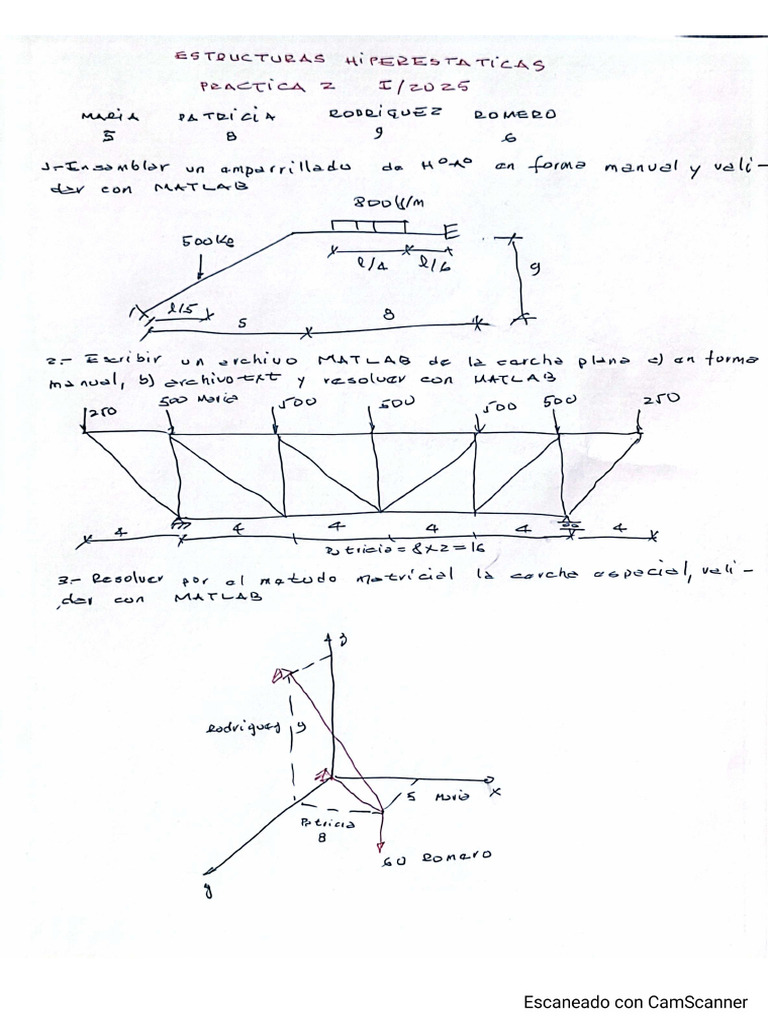 ESTRUCTURAS HIPERESTATICAS
PRACTICA 2 I/2025
MARIA PATRICIA RODRIGUEZ ROMERO
5 8 9 6
1.- Ensamblar un amparrillado de HºAº en forma manual y vali-
dar con MATLAB
800 k/m
500 KG
l/4 l/6
9
l/5
5
8
2.- Escribir un archivo MATLAB de la cercha plana a) en forma
manual, b) archivo txt y resolver con MATLAB
250 500 Maria 500 500 500 500 250
4 4 4 4 4 4
Patricia = 8x2=16
3.- Resolver por el metodo matricial la cercha espacial, vali-
dar con MATLAB
z
Rodriguez 9
5 Maria
x
Patricia
8
60 Romero
y
Escaneado con CamScanner